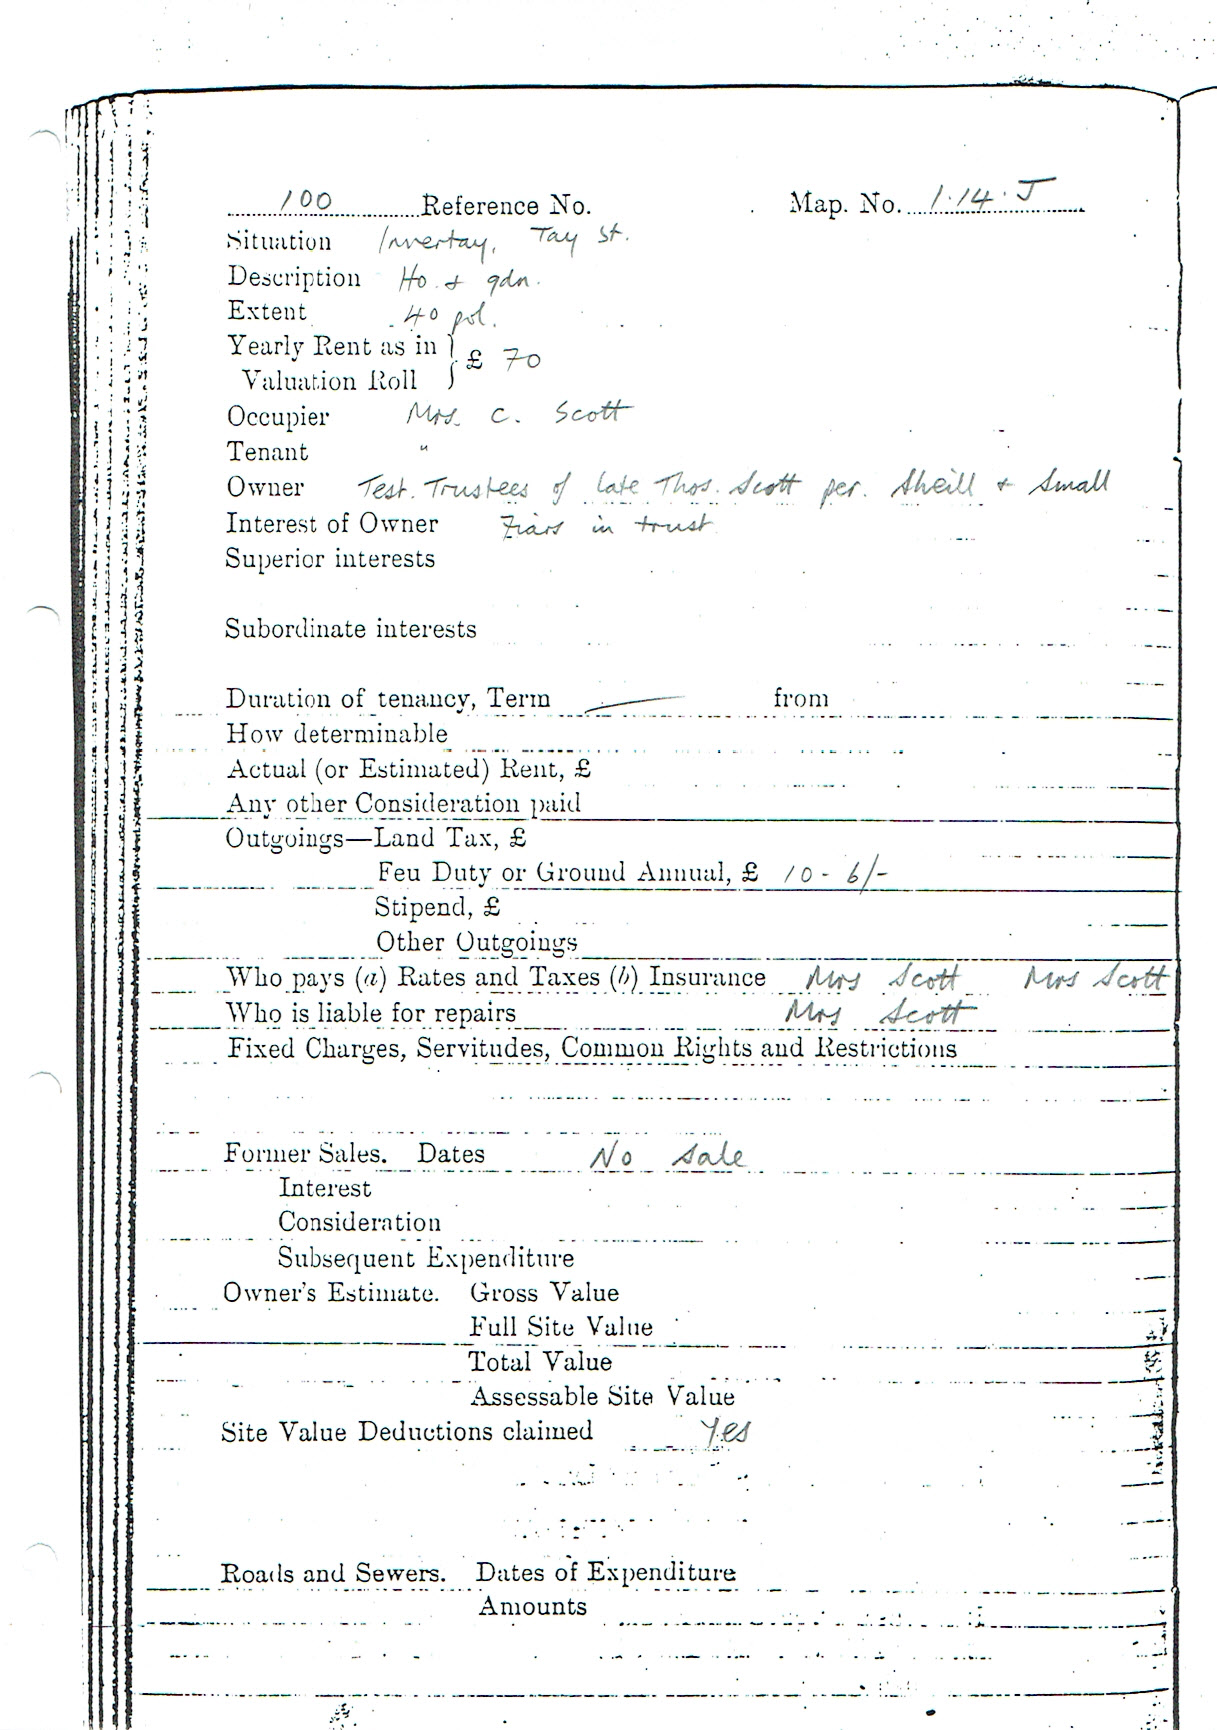 100 Reference No. Map. No. 1.14.J
Situation Invertay, Tay St.
Description Ho. & gdn.
Extent 40 pol.
Yearly Rent as in
Valuation Roll } £ 70
Occupier Mrs. C. Scott
Tenant "
Owner Test. Trustees of late Thos. Scott per. Sheill & Small
Interest of Owner Fiars in trust
Superior interests
Subordinate interests
Duration of tenancy, Term — from
How determinable
Actual (or Estimated) Rent, £
Any other Consideration paid
Outgoings—Land Tax, £
Feu Duty or Ground Annual, £ 10 - 6/-
Stipend, £
Other Outgoings
Who pays (a) Rates and Taxes (b) Insurance Mrs Scott Mrs Scott
Who is liable for repairs Mrs Scott
Fixed Charges, Servitudes, Common Rights and Restrictions
Former Sales. Dates No sale
Interest
Consideration
Subsequent Expenditure
Owner's Estimate. Gross Value
Full Site Value
Total Value
Assessable Site Value
Site Value Deductions claimed Yes
Roads and Sewers. Dates of Expenditure
Amounts